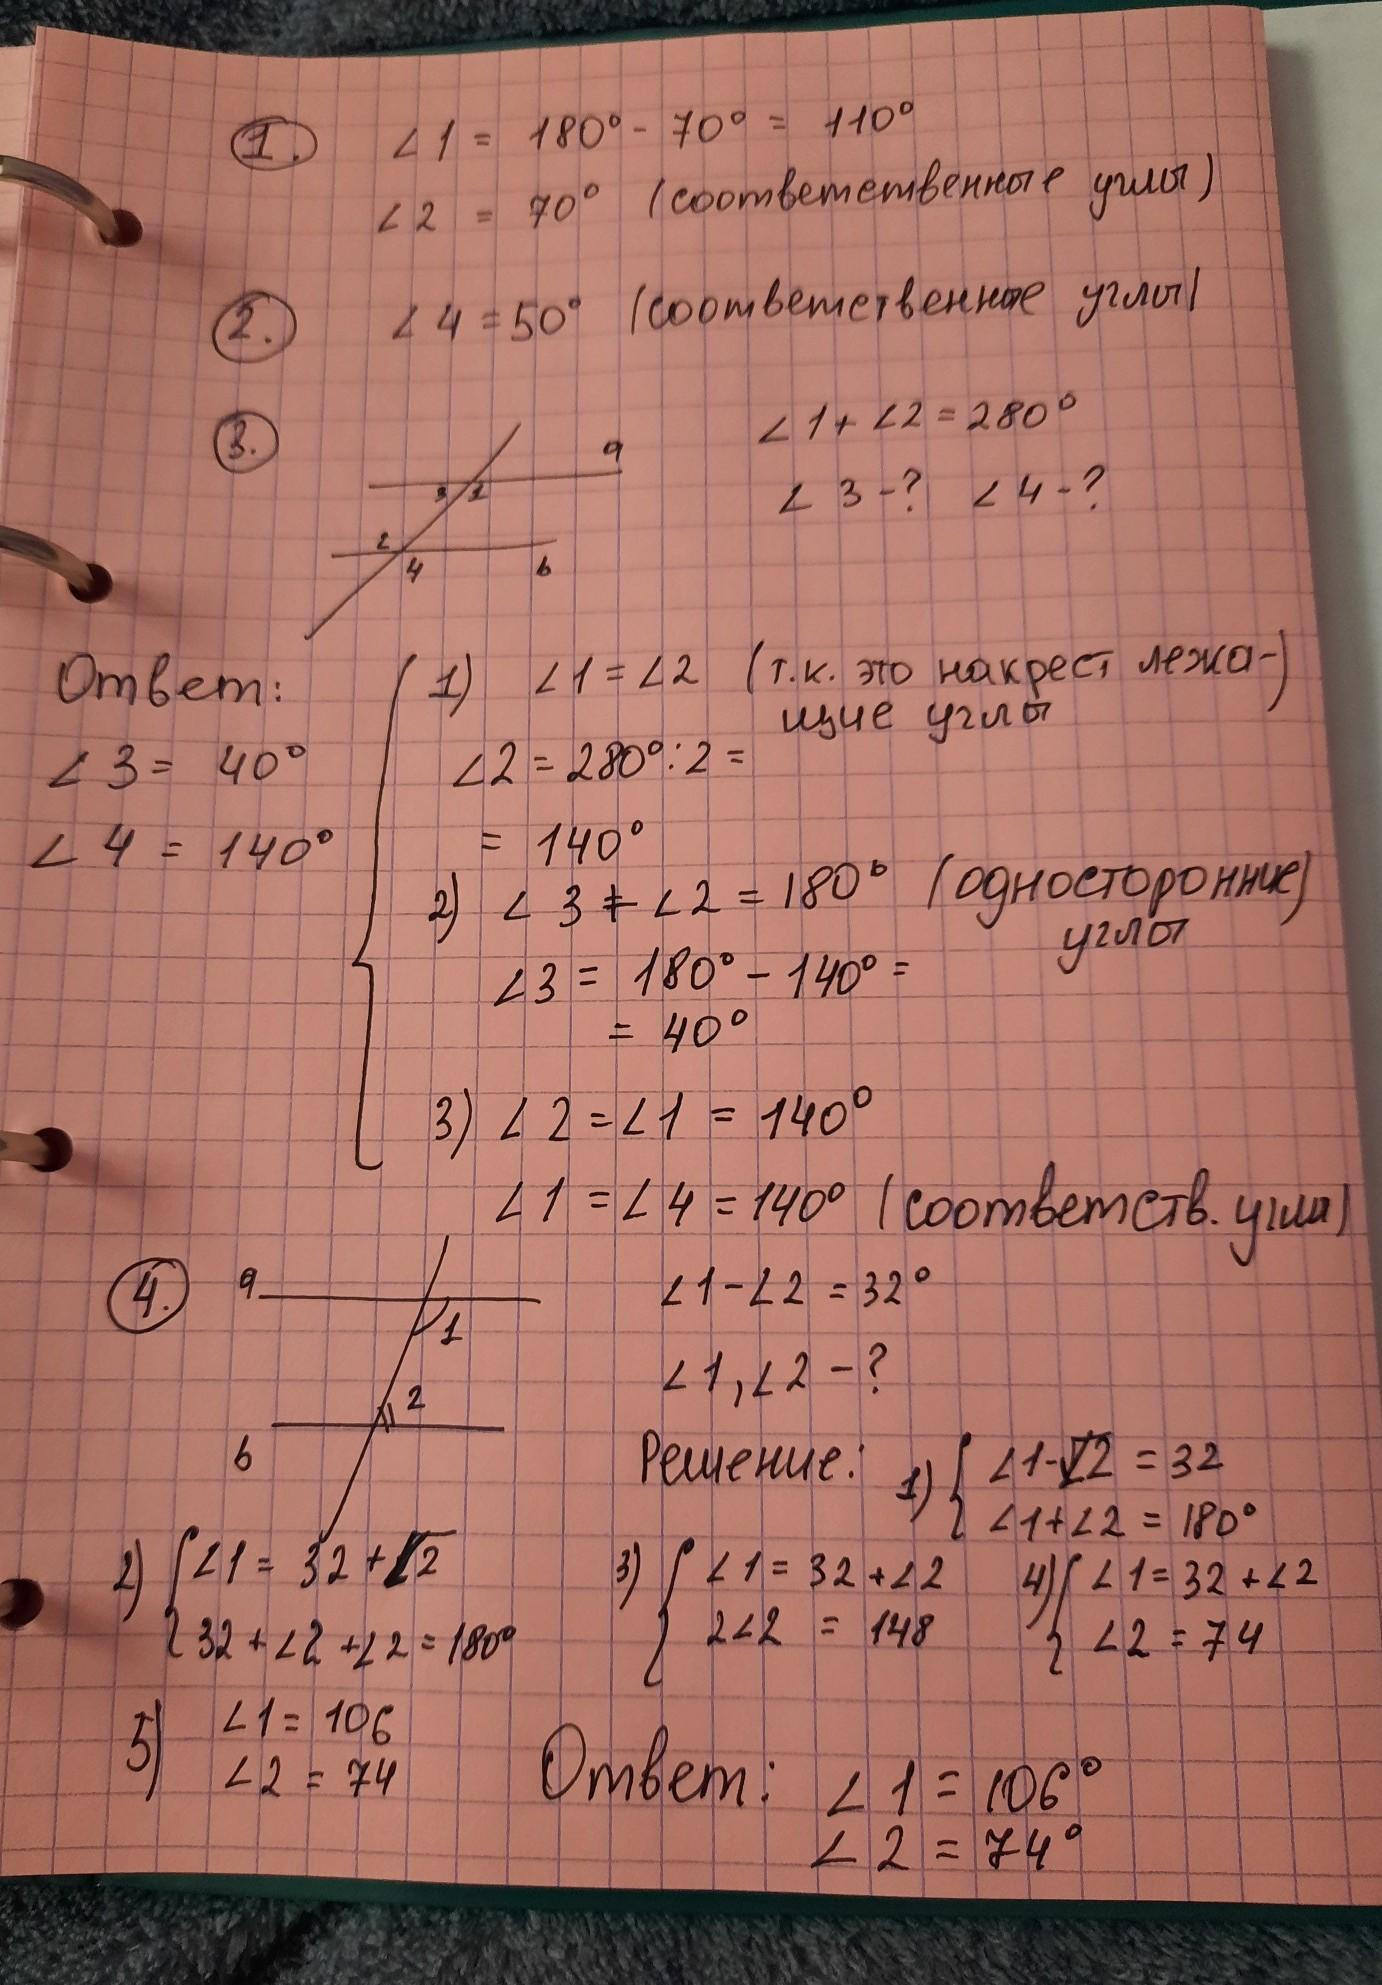 1. ∠1 = 180° - 70° = 110°
∠2 = 70° (соответственные углы)
2. ∠4 = 50° (соответственные углы)
3.
a
3 1
2
4 b
∠1 + ∠2 = 280°
∠3 - ? ∠4 - ?
Ответ:
∠3 = 40°
∠4 = 140°
1) ∠1 = ∠2 (т.к. это накрест лежа-
щие углы)
∠2 = 280° : 2 =
= 140°
2) ∠3 + ∠2 = 180° (односторонние
углы)
∠3 = 180° - 140° =
= 40°
3) ∠2 = ∠1 = 140°
∠1 = ∠4 = 140° (соответств. углы)
4.
a
1
2
b
∠1 - ∠2 = 32°
∠1, ∠2 - ?
Решение:
1) { ∠1 - ∠2 = 32
∠1 + ∠2 = 180°
2) { ∠1 = 32 + ∠2
32 + ∠2 + ∠2 = 180°
3) { ∠1 = 32 + ∠2
2∠2 = 148
4) { ∠1 = 32 + ∠2
∠2 = 74
5) ∠1 = 106
∠2 = 74
Ответ: ∠1 = 106°
∠2 = 74°